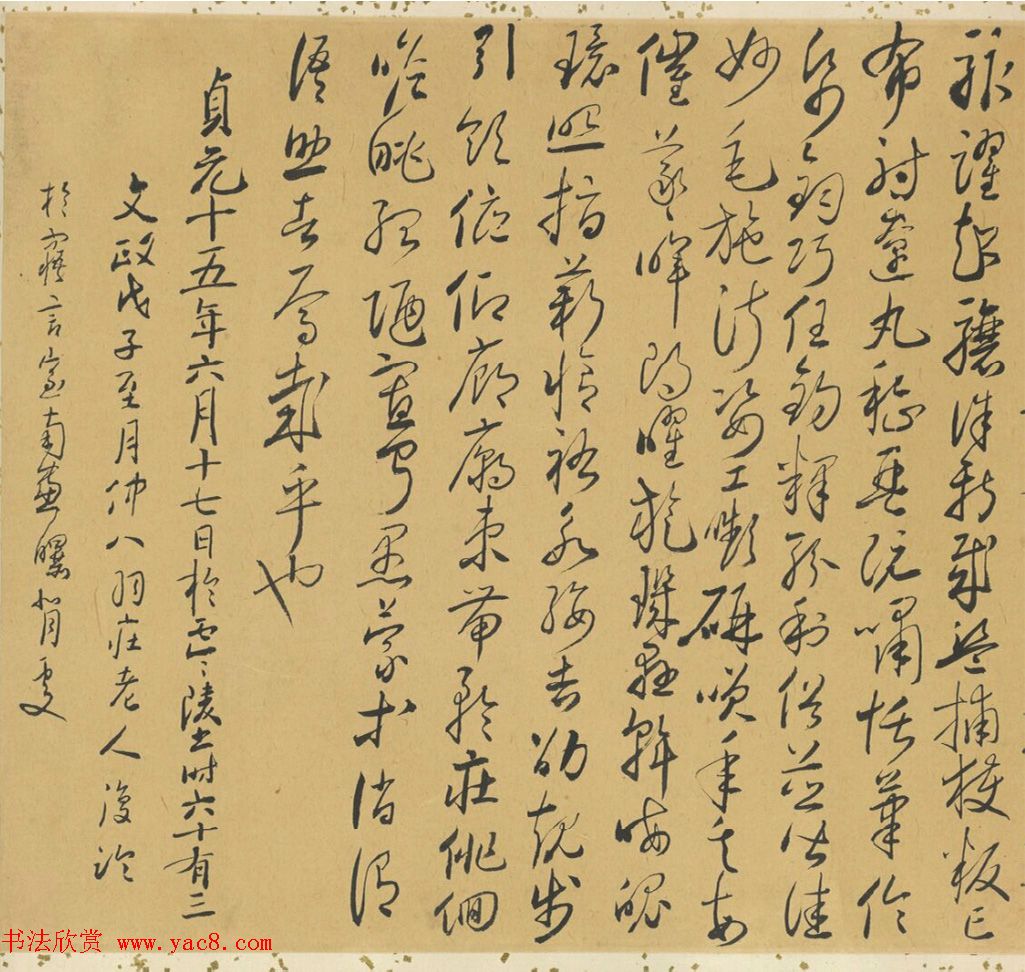 駭躍超驤誅斬賊盜捕獲叛亡
布射遼丸嵇琴阮嘯恬筆倫
紙鈞巧任釣釋紛利俗並皆佳
妙毛施淑姿工嚬研笑年矢每
催羲暉朗曜旋璣懸斡晦魄
環照指薪修祜永綏吉劭矩步
引領俯仰廊廟束帶矜莊徘徊
瞻眺孤陋寡聞愚蒙等誚謂
語助者焉哉乎也
貞元十五年六月十七日於零陵書時六十有三
文政戊子至月仲八羽莊老人復臨
於寤言室南簷曝背處
书法欣赏 www.yac8.com